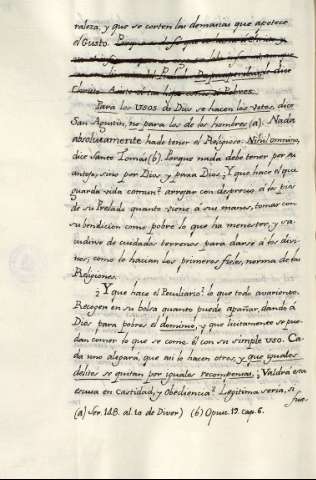 raleza, y que se corten las demasias que apetece
el Gusto.
Para los Usos de Dios se hacen los Votos, dice
San Agustin, no para los de los hombres (a). Nada
absolutamente ha de tener el Religioso: Nihil omnino,
dice Santo Tomás (b). Porque nada debe tener por su
antojo, sino por Dios, y para Dios. ¿Y que hace el que
guarda vida comun? arrojar con desprecio á los pies
de su Prelado quanto viene á sus manos, tomar con
su bendicion como pobre lo que ha menester, y sa-
cudirse de cuidados terrenos para darse á los divi-
nos, como lo hacian los primeros fieles, norma de las
Religiones.
¿Y que hace el Peculiario? lo que todo avariento.
Recoger en su bolsa quanto puede apañar, dando á
Dios para pobres el dominio, y que licitamente se pue-
dan comer lo que se come él con su simple uso. Ca-
da uno alegará, que asi lo hacen otros, y que iguales
delitos se quitan por iguales recompensas. ¿Valdrá esta
escusa en Castidad, y Obediencia? Legitima seria, si
fue-
(a) Ser. 148. al 10 de Diver) (b) Opusc. 19. cap. 6.